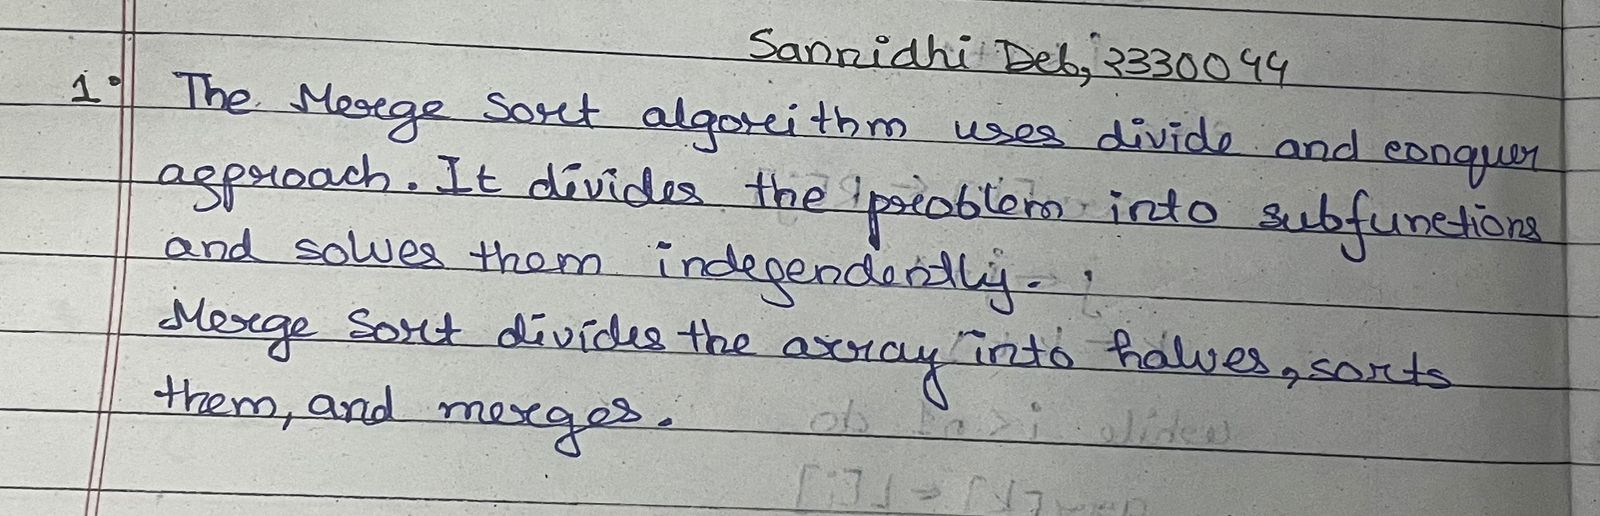 Sannidhi Deb, 2330044
1. The Merge Sort algorithm uses divide and conquer
approach. It divides the problem into subfunctions
and solves them independently.
Merge Sort divides the array into halves, sorts
them, and merges.
while i < n1 do
arr[k] = L[i]